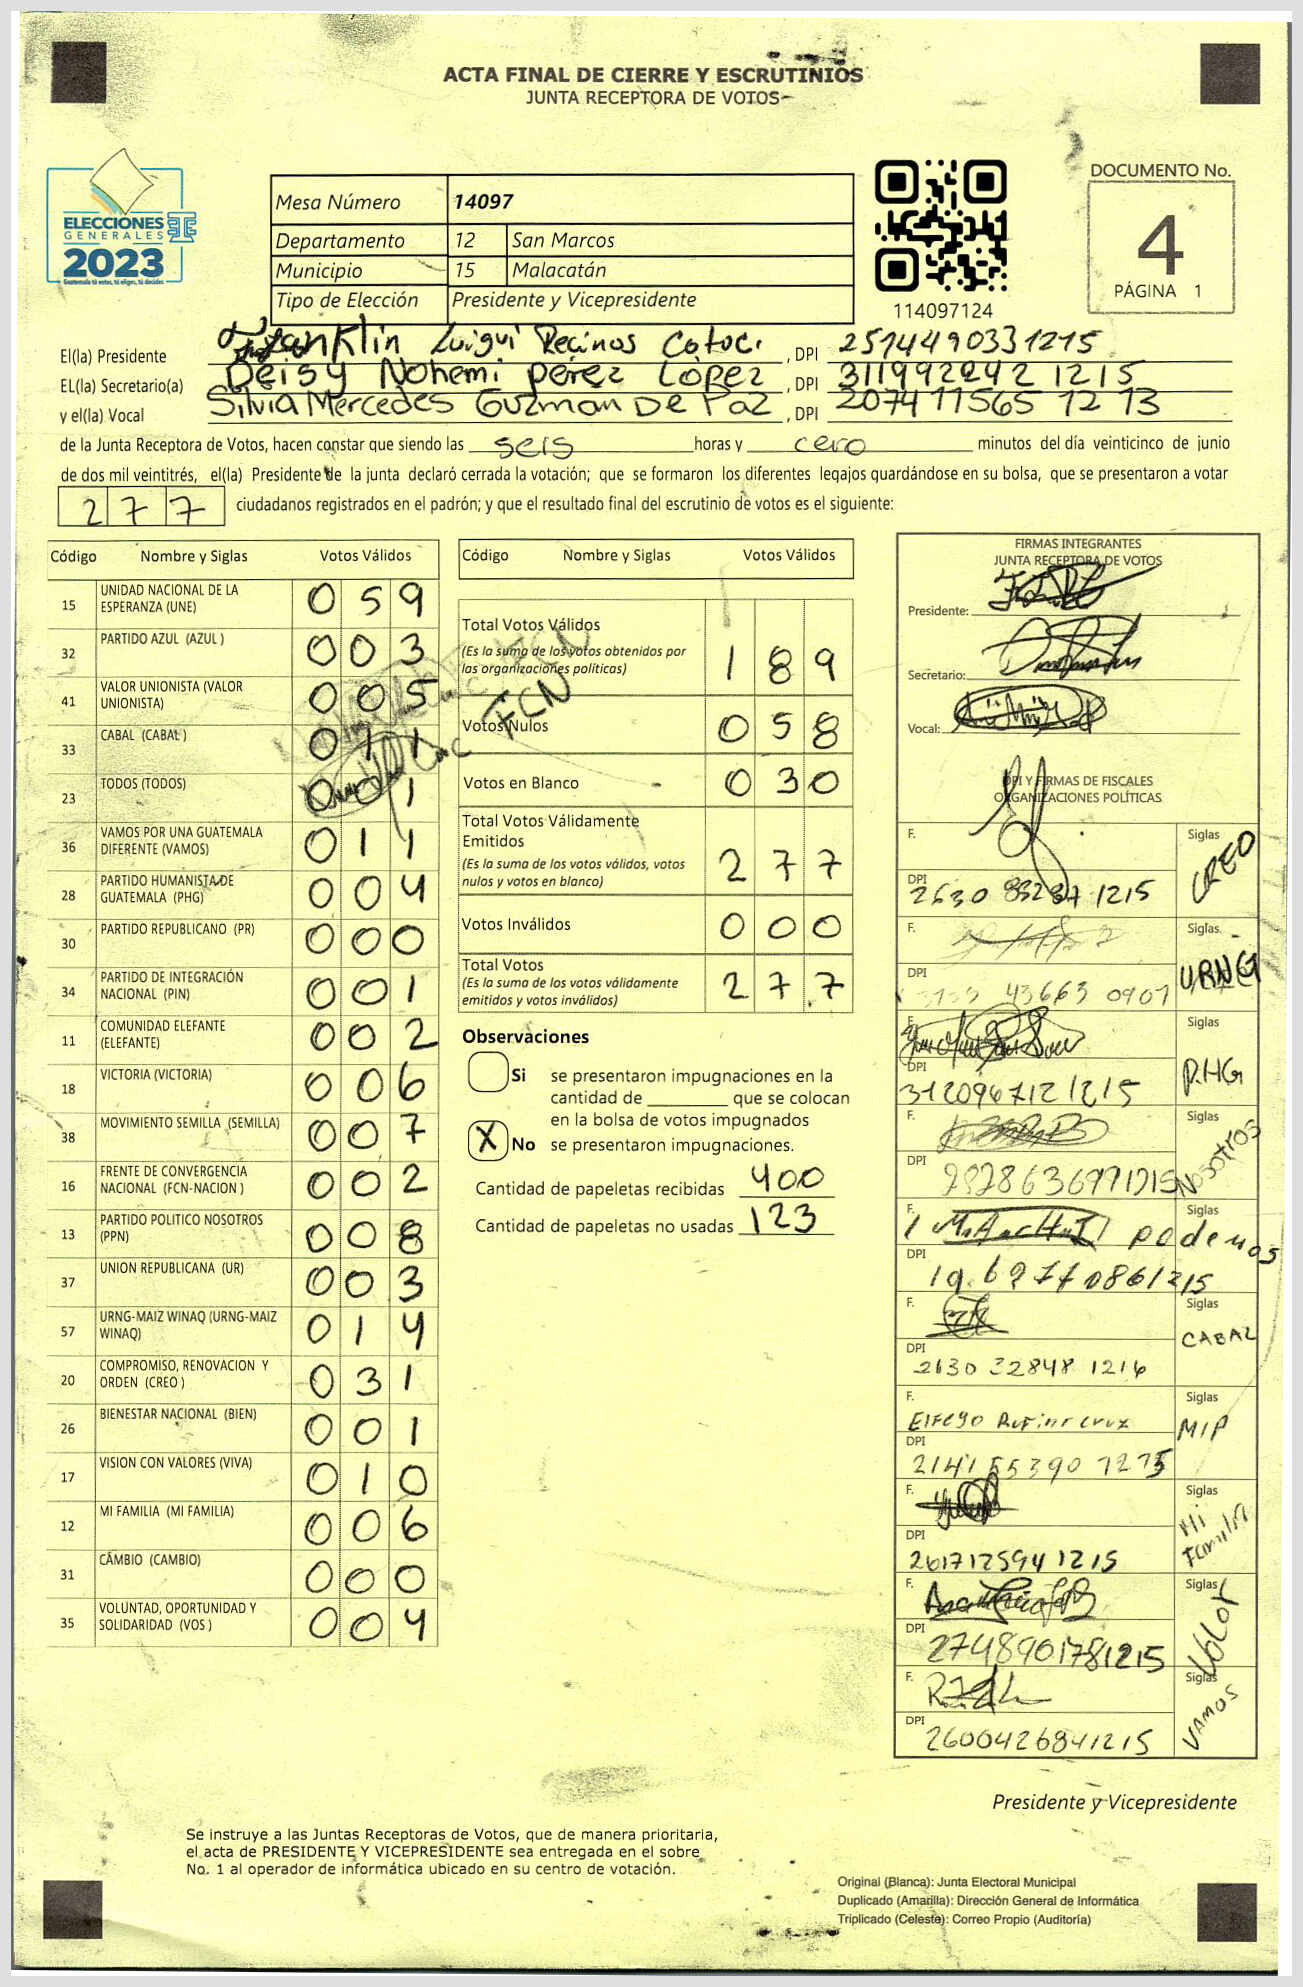 ACTA FINAL DE CIERRE Y ESCRUTINIOS
JUNTA RECEPTORA DE VOTOS
ELECCIONES
GENERALES
2023
Guatemala tú votas, tú eliges, tú decides
Mesa Número 14097
Departamento 12 San Marcos
Municipio 15 Malacatán
Tipo de Elección Presidente y Vicepresidente
114097124
DOCUMENTO No.
4
PÁGINA 1
El(la) Presidente Franklin Luigui Recinos Cotoc. , DPI 2514490331215
EL(la) Secretario(a) Deisy Nohemi pérez López , DPI 311992292 1215
y el(la) Vocal Silvia Mercedes Guzman De Paz , DPI 207411565 12 13
de la Junta Receptora de Votos, hacen constar que siendo las seis horas y cero minutos del día veinticinco de junio
de dos mil veintitrés, el(la) Presidente de la junta declaró cerrada la votación; que se formaron los diferentes legajos guardándose en su bolsa, que se presentaron a votar
277 ciudadanos registrados en el padrón; y que el resultado final del escrutinio de votos es el siguiente:
Código Nombre y Siglas Votos Válidos
15 UNIDAD NACIONAL DE LA ESPERANZA (UNE) 059
32 PARTIDO AZUL (AZUL ) 003
41 VALOR UNIONISTA (VALOR UNIONISTA) 005
33 CABAL (CABAL ) 011
23 TODOS (TODOS) 001
36 VAMOS POR UNA GUATEMALA DIFERENTE (VAMOS) 011
28 PARTIDO HUMANISTA DE GUATEMALA (PHG) 004
30 PARTIDO REPUBLICANO (PR) 000
34 PARTIDO DE INTEGRACIÓN NACIONAL (PIN) 001
11 COMUNIDAD ELEFANTE (ELEFANTE) 002
18 VICTORIA (VICTORIA) 006
38 MOVIMIENTO SEMILLA (SEMILLA) 007
16 FRENTE DE CONVERGENCIA NACIONAL (FCN-NACION ) 002
13 PARTIDO POLITICO NOSOTROS (PPN) 008
37 UNION REPUBLICANA (UR) 003
57 URNG-MAIZ WINAQ (URNG-MAIZ WINAQ) 014
20 COMPROMISO, RENOVACION Y ORDEN (CREO ) 031
26 BIENESTAR NACIONAL (BIEN) 001
17 VISION CON VALORES (VIVA) 010
12 MI FAMILIA (MI FAMILIA) 006
31 CAMBIO (CAMBIO) 000
35 VOLUNTAD, OPORTUNIDAD Y SOLIDARIDAD (VOS ) 004
FCN
FCN
Código Nombre y Siglas Votos Válidos
Total Votos Válidos 189
(Es la suma de los votos obtenidos por las organizaciones políticas)
Votos Nulos 058
Votos en Blanco 030
Total Votos Válidamente Emitidos 277
(Es la suma de los votos válidos, votos nulos y votos en blanco)
Votos Inválidos 000
Total Votos 277
(Es la suma de los votos válidamente emitidos y votos inválidos)
Observaciones
Si se presentaron impugnaciones en la
cantidad de que se colocan
en la bolsa de votos impugnados
X No se presentaron impugnaciones.
Cantidad de papeletas recibidas 400
Cantidad de papeletas no usadas 123
FIRMAS INTEGRANTES
JUNTA RECEPTORA DE VOTOS
Presidente:
Secretario:
Vocal:
DPI Y FIRMAS DE FISCALES
ORGANIZACIONES POLÍTICAS
F. Siglas CREO
DPI 2630 1215
F. Siglas URNG
DPI 43663 0907
F. Siglas P.HG
DPI 3120967121215
F. Siglas Nosotros
DPI 2828636991215
F. Siglas podemos
DPI 19 69770861215
F. Siglas CABAL
DPI 2630 32848 1216
F. Elfego Rufino Cruz Siglas MIP
DPI 2141 55390 1215
F. Siglas Mi Familia
DPI 2617125941215
F. Siglas Valor
DPI 2748901781215
F. Siglas VAMOS
DPI 2600426841215
Presidente y Vicepresidente
Se instruye a las Juntas Receptoras de Votos, que de manera prioritaria,
el acta de PRESIDENTE Y VICEPRESIDENTE sea entregada en el sobre
No. 1 al operador de informática ubicado en su centro de votación.
Original (Blanca): Junta Electoral Municipal
Duplicado (Amarilla): Dirección General de Informática
Triplicado (Celeste): Correo Propio (Auditoría)